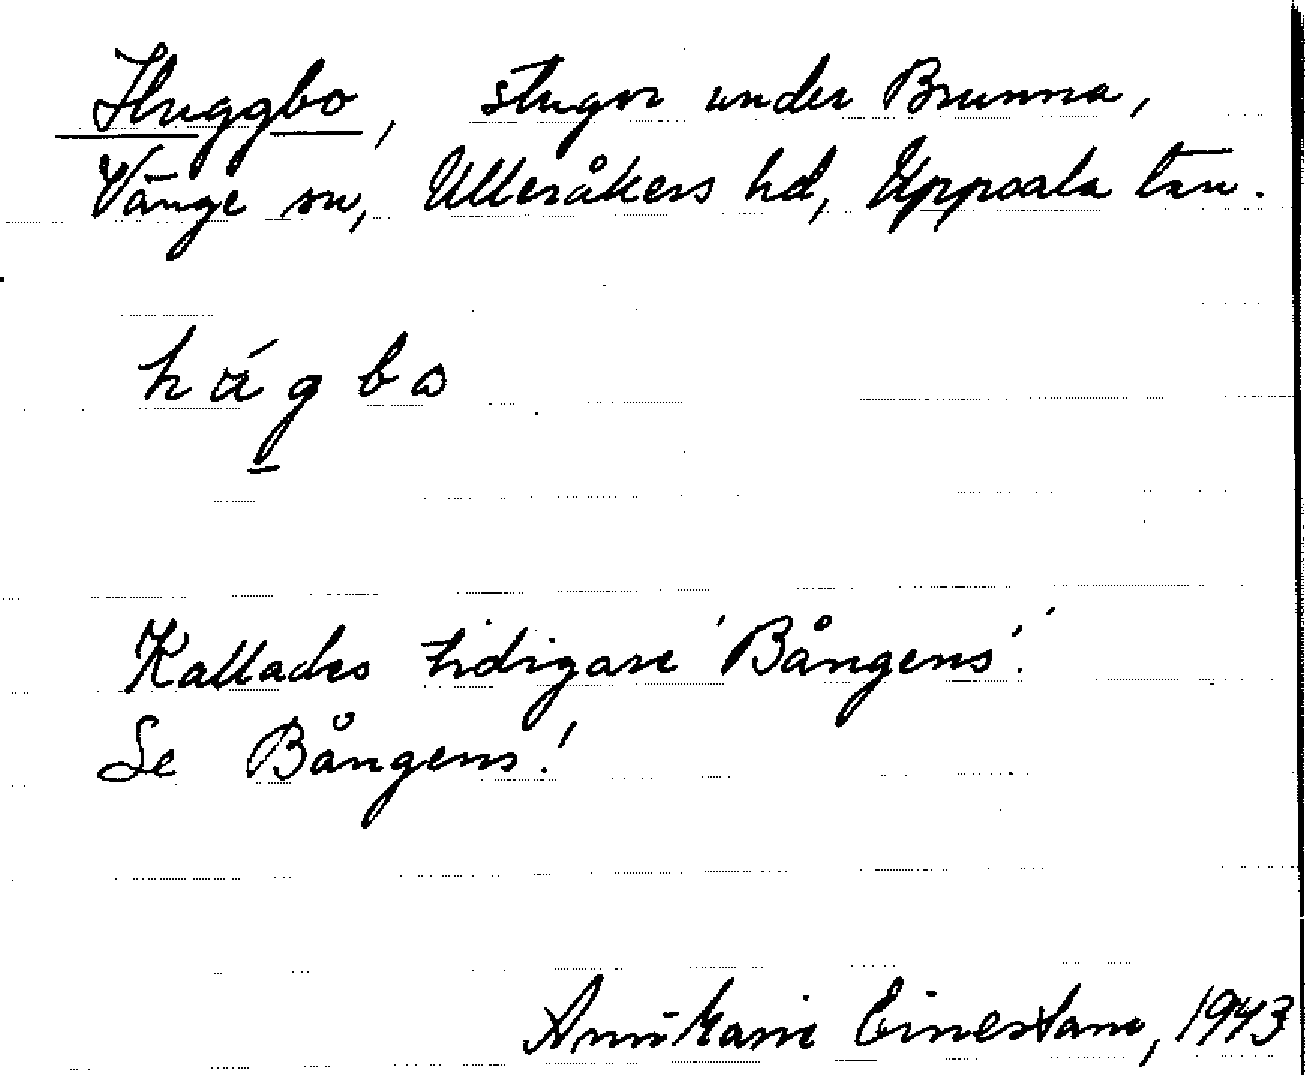 Huggbo, stugor under Brunna,
Vänge sn, Ulleråkers hd, Uppsala län.
hágbo
Kallades tidigare 'Bångens'.
Se Bångens!
Einestam, 1943